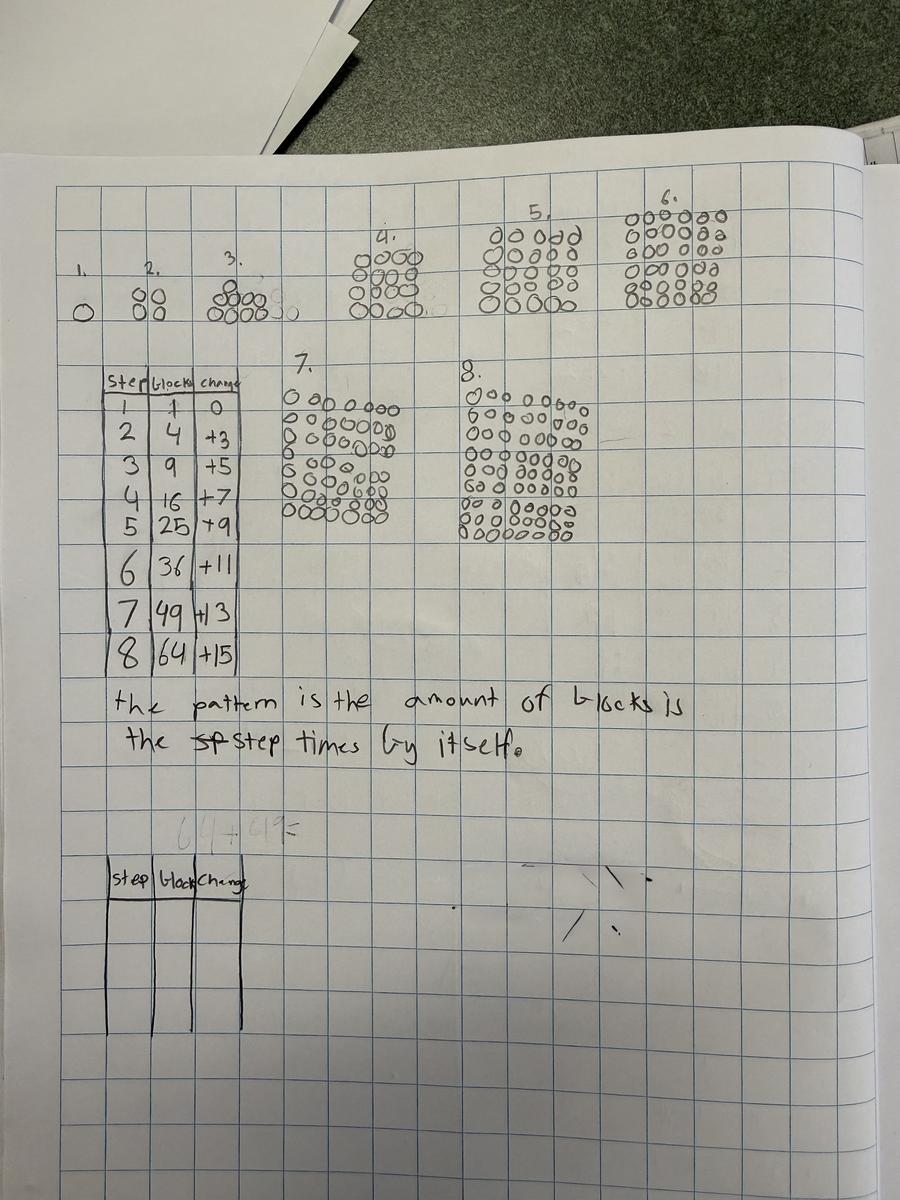 1. 2. 3. 4. 5. 6.
7. 8.
step blocks change
1 1 0
2 4 +3
3 9 +5
4 16 +7
5 25 +9
6 36 +11
7 49 +13
8 64 +15
the pattern is the amount of blocks is
the sp step times by itself.
64+49=
step block change